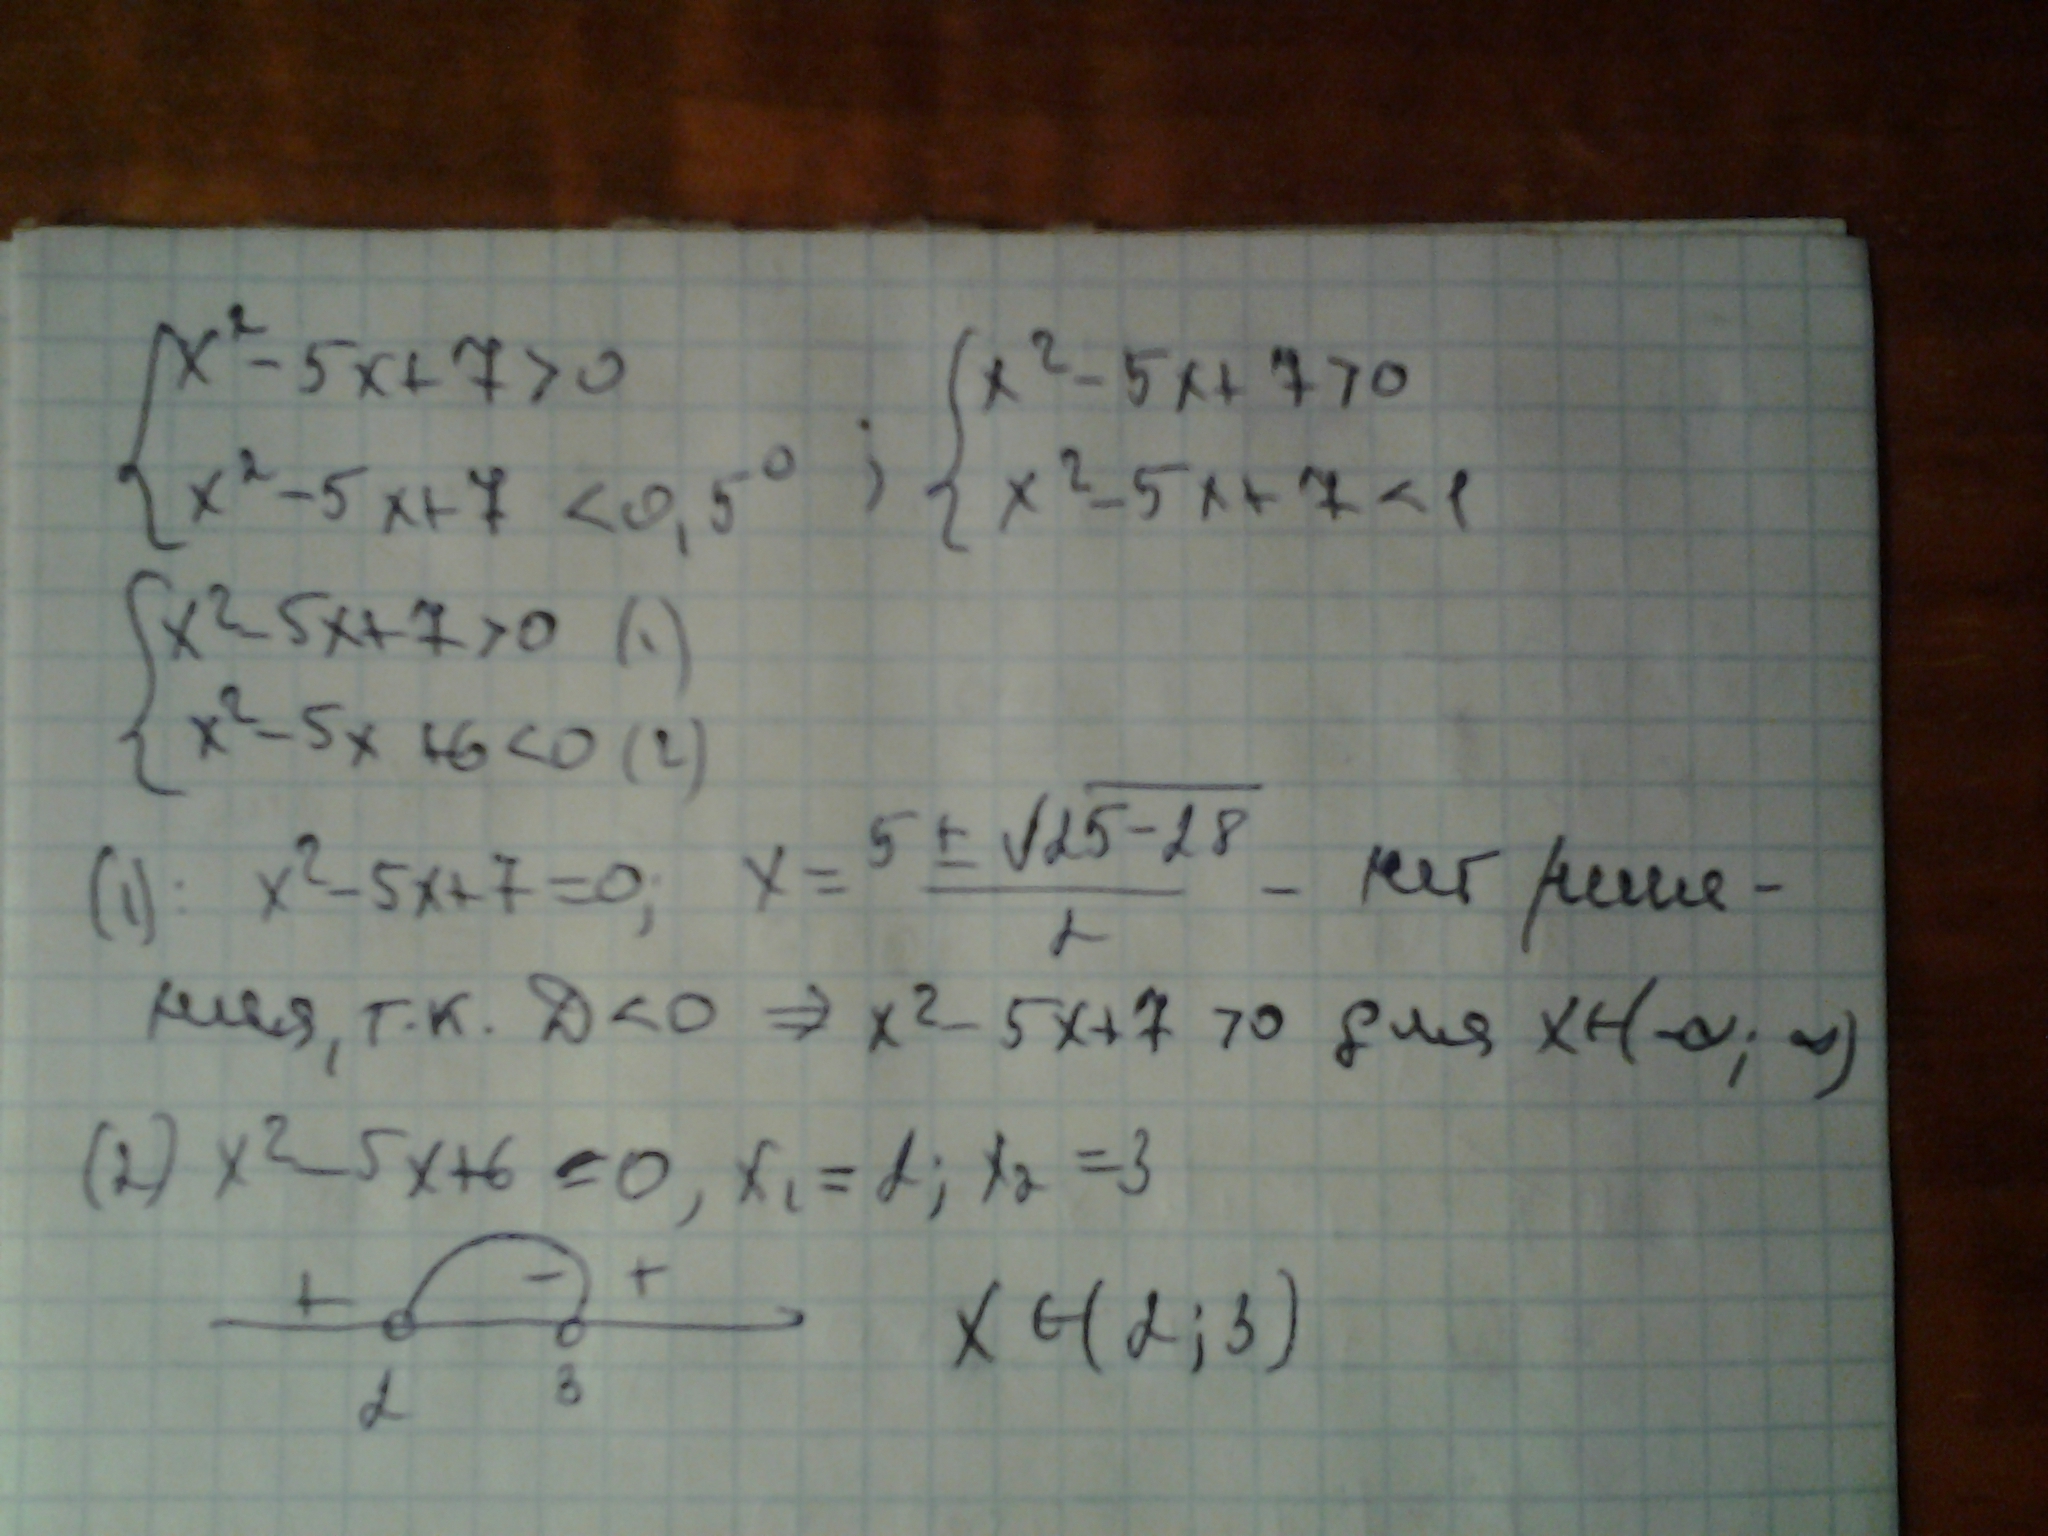 {x² - 5x + 7 > 0
x² - 5x + 7 < 0,5⁰ ; {x² - 5x + 7 > 0
x² - 5x + 7 < 1
{x² - 5x + 7 > 0 (1)
x² - 5x + 6 < 0 (2)
(1): x² - 5x + 7 = 0; x = (5 ± √25 - 28)/2 - нет реше-
ния, т.к. D < 0 ⇒ x² - 5x + 7 > 0 для x ∈ (-∞; ∞)
(2) x² - 5x + 6 = 0, x₁ = 2; x₂ = 3
+ - +
2 3
x ∈ (2; 3)